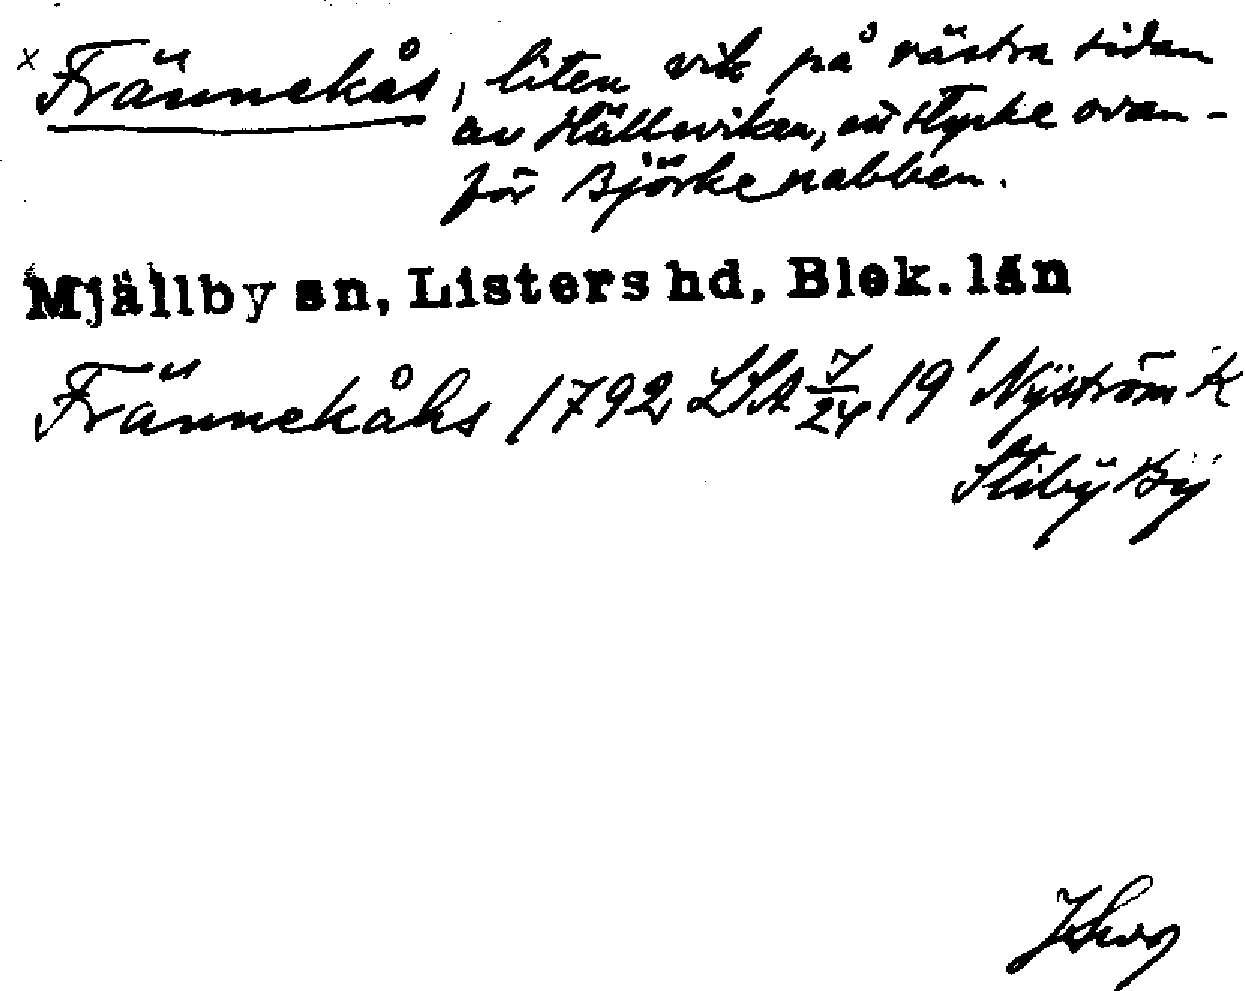 x Frännekås, liten vik på västra sidan
av Hälleviken, ett stycke ovan-
för Björkenabben.
Mjällby sn, Listers hd, Blek. län
Frännekåhs 1792 LSA 19' Nyström K
Stiby By